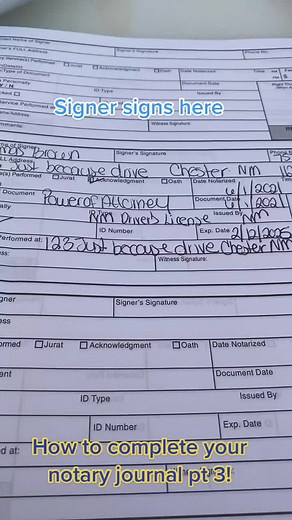 nted Name of Signer
Signer's Signature
Phone No.
er's FULL Address
ary Service(s) Performed
Jurat
Acknowledgment
Oath
Date Notarized
Time
AM
PM
Fee
$
Type of Document
Document Date
ID Type
Issued By
ID Number
Exp. Date
ervice Performed at:
Witness Signature:
Signer signs here
me of Signer
Signer's Signature
Brown
ULL Address
Just because drive Chester NM
e(s) Performed
Jurat
Acknowledgment
Oath
Date Notarized
6/1/2021
Document
Power of Attorney
Document Date
ID Type
Driver's License
Issued By
NM
ID Number
Exp. Date
2/12/2025
Performed at:
123 Just because drive Chester NM
Witness Signature:
gner
Signer's Signature
ess
ormed
Jurat
Acknowledgment
Oath
Date Notarized
ent
Document Date
ID Type
Issued By
ID Number
Exp. Date
d at:
How to complete your
notary journal pt 3!